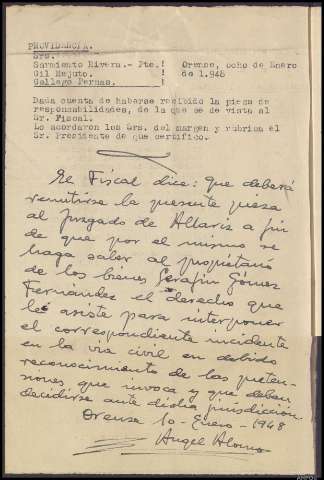 PROVIDENCIA.
Sres.
Sarmiento Rivera.- Pte.! Orense, ocho de Enero
Gil Rejuto. ! de 1.948
Gallego Pernas. !
Dada cuenta de haberse recibido la pieza de
responsabilidades, de la que se de vista al
Sr. Fiscal.
Lo acordaron los Srs. del margen y rubrica el
Sr. Presidente de que certifico.
El Fiscal dice: que deberá
remitirse la presente pieza
al Juzgado de Allariz a fin
de que por el mismo se
haga saber al propietario
de los bienes Serafín Gómez
Fernández el derecho que
le asiste para interponer
el correspondiente incidente
en la via civil en debido
reconocimiento de las preten-
siones que invoca y que deben
decidirse ante dicha jurisdicción
Orense 10-Enero-1948
Angel Alonso